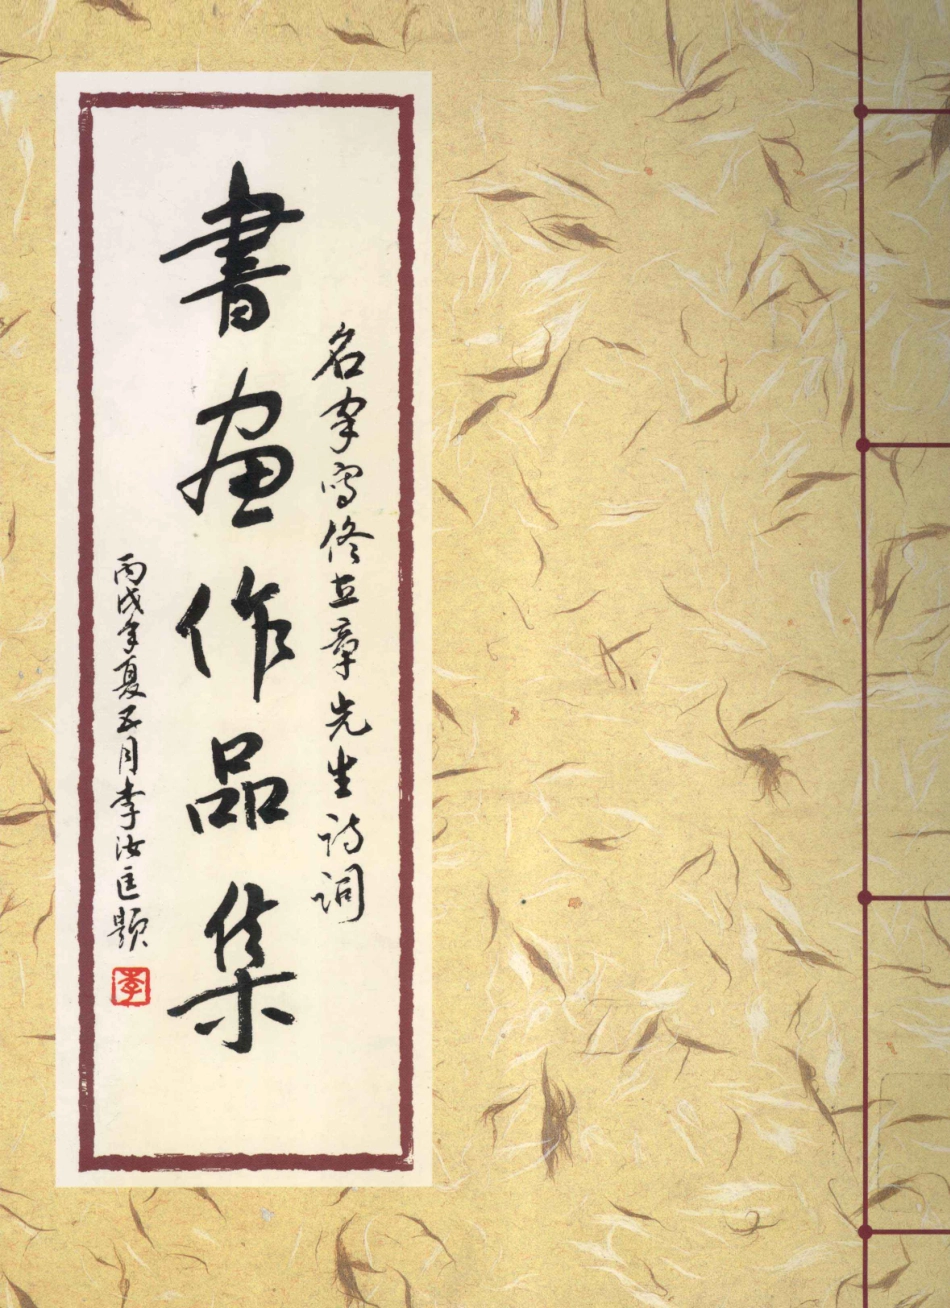 名家写佟立章先生诗词
書画作品集
丙戌年夏五月李汝匡题
李